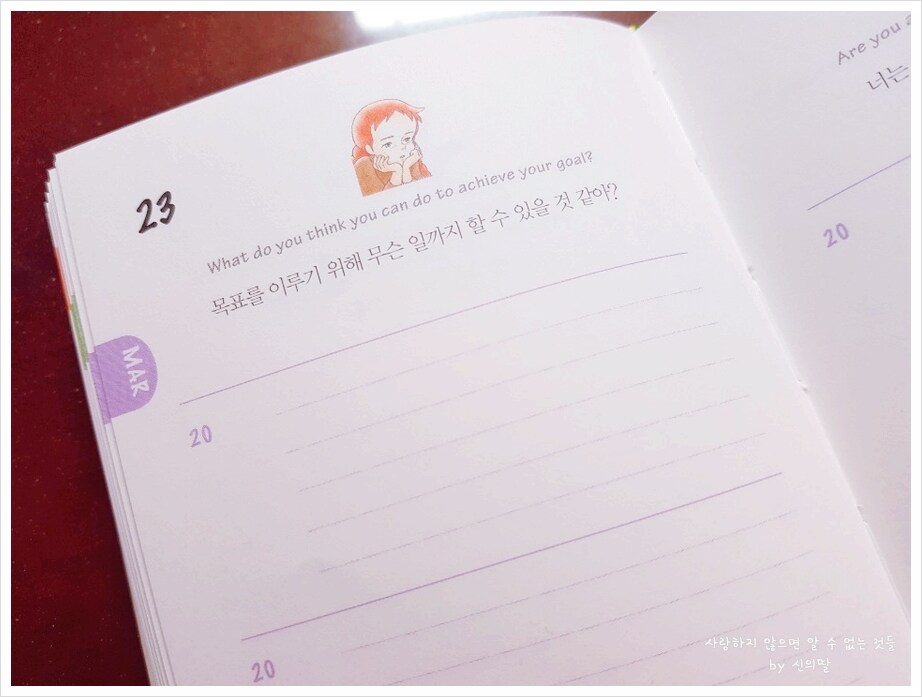 23
What do you think you can do to achieve your goal?
목표를 이루기 위해 무슨 일까지 할 수 있을 것 같아?
MAR
20
20
Are you
너는
20
사랑하지 않으면 알 수 없는 것들
by 신의딸